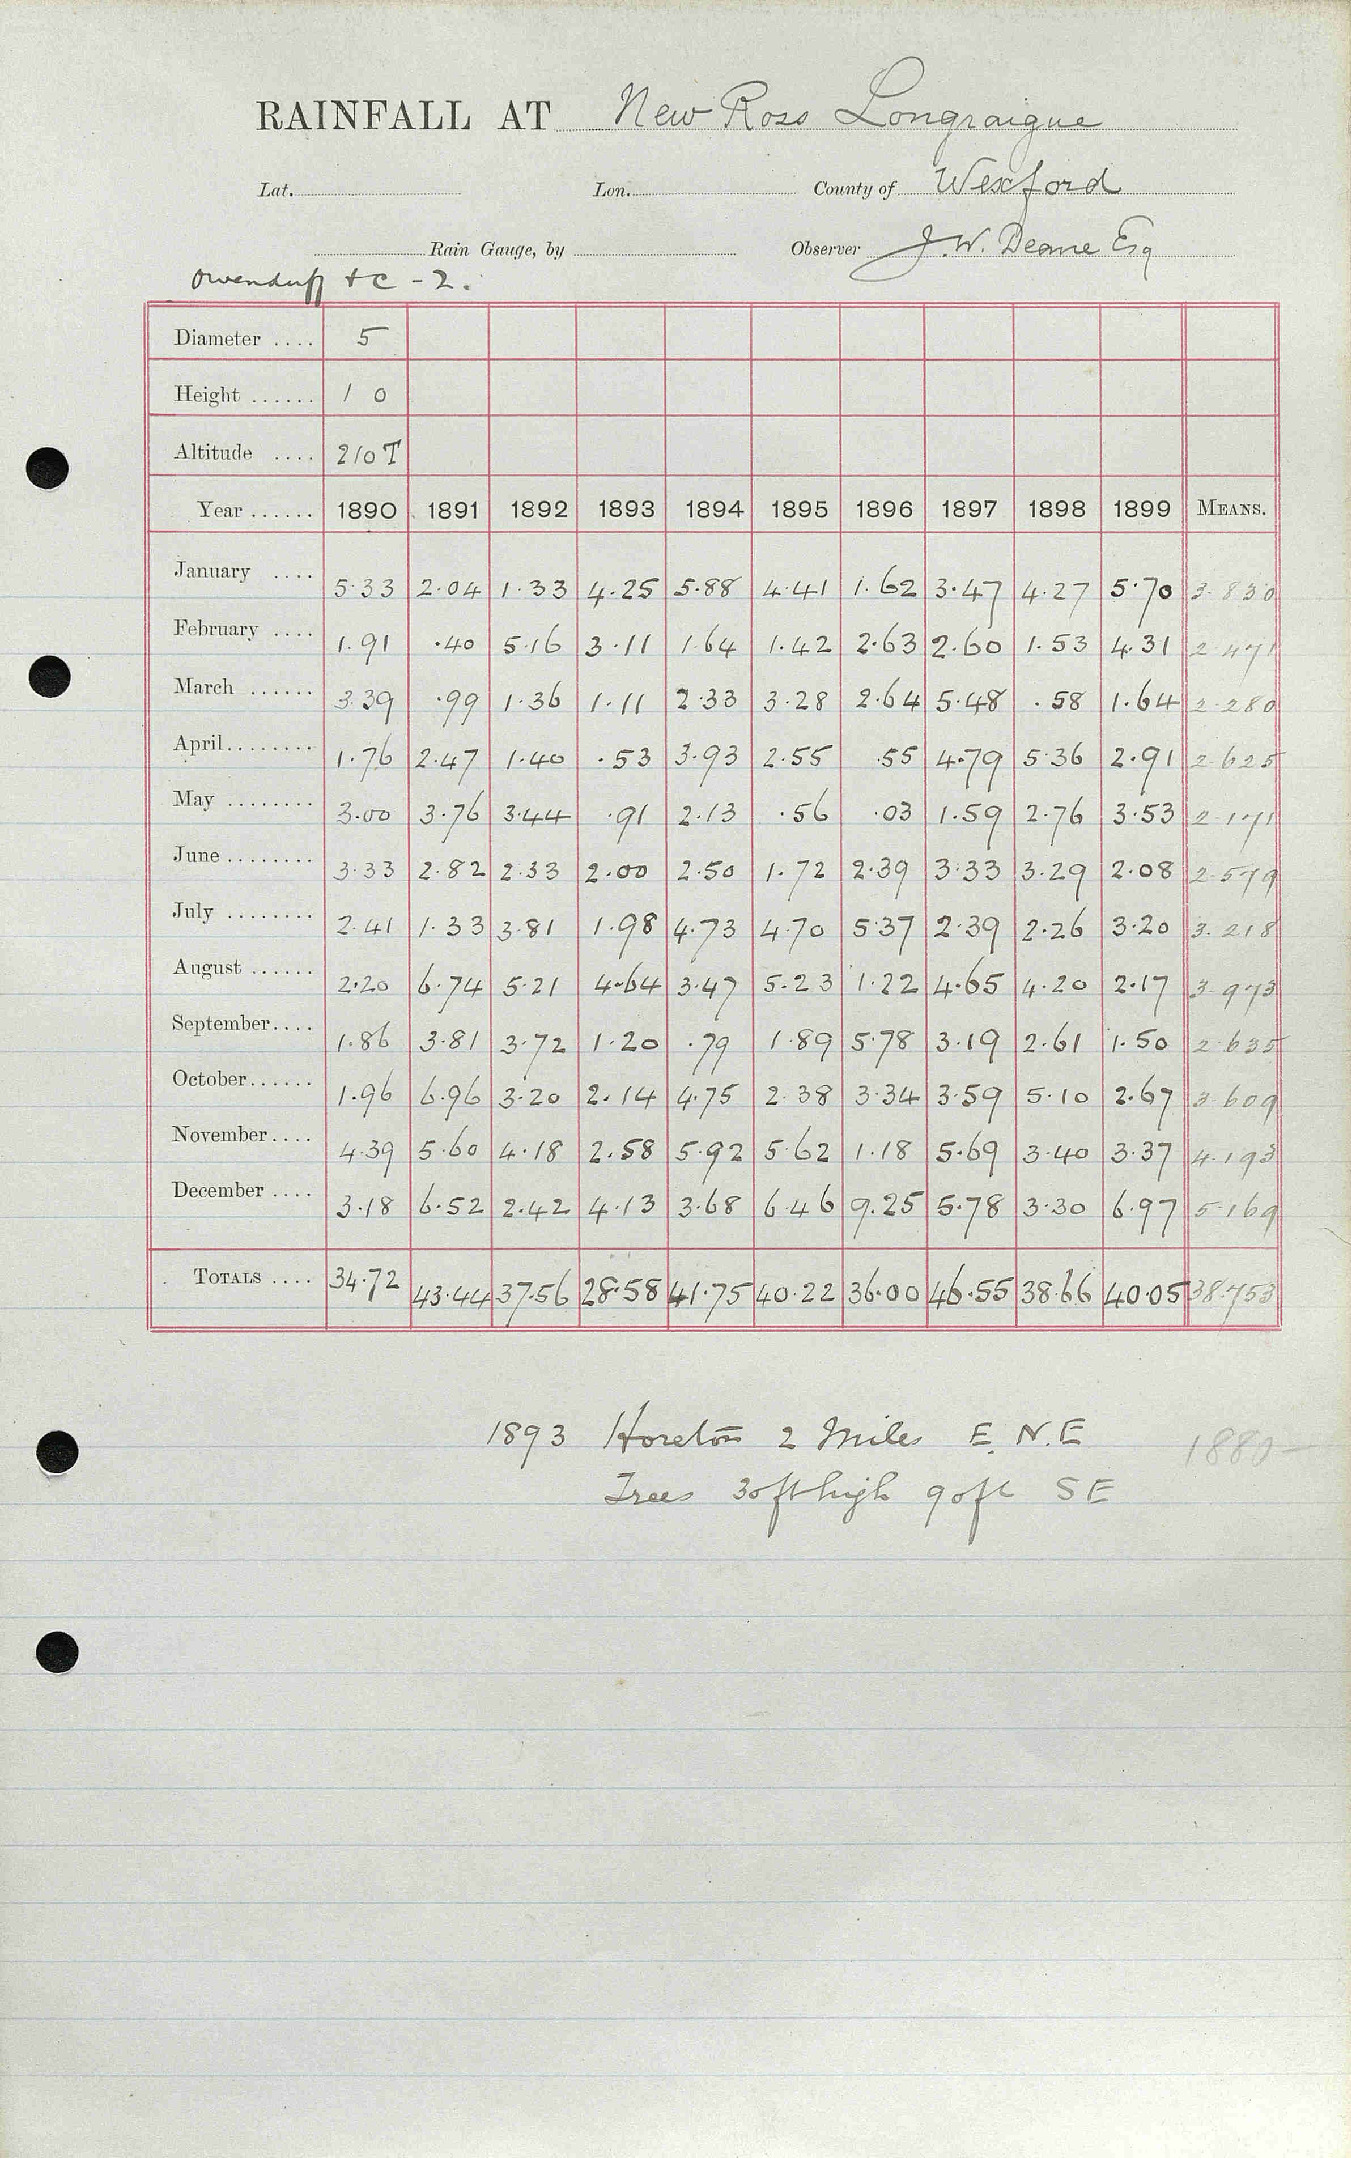 RAINFALL AT New Ross Longraigue
Lat. Lon. County of Wexford
Rain Gauge, by Observer J. W. Deane Esq
Owenduff + C - 2.
Diameter .... 5
Height ...... 1 0
Altitude .... 210 T
Year ...... 1890 1891 1892 1893 1894 1895 1896 1897 1898 1899 MEANS.
January .... 5.33 2.04 1.33 4.25 5.88 4.41 1.62 3.47 4.27 5.70 3.830
February .... 1.91 .40 5.16 3.11 1.64 1.42 2.63 2.60 1.53 4.31 2.471
March ...... 3.39 .99 1.36 1.11 2.33 3.28 2.64 5.48 .58 1.64 2.280
April ........ 1.76 2.47 1.40 .53 3.93 2.55 .55 4.79 5.36 2.91 2.625
May ........ 3.00 3.76 3.44 .91 2.13 .56 .03 1.59 2.76 3.53 2.171
June ........ 3.33 2.82 2.33 2.00 2.50 1.72 2.39 3.33 3.29 2.08 2.579
July ........ 2.41 1.33 3.81 1.98 4.73 4.70 5.37 2.39 2.26 3.20 3.218
August ...... 2.20 6.74 5.21 4.64 3.47 5.23 1.22 4.65 4.20 2.17 3.973
September .... 1.86 3.81 3.72 1.20 .79 1.89 5.78 3.19 2.61 1.50 2.635
October ...... 1.96 6.96 3.20 2.14 4.75 2.38 3.34 3.59 5.10 2.67 3.609
November .... 4.39 5.60 4.18 2.58 5.92 5.62 1.18 5.69 3.40 3.37 4.193
December .... 3.18 6.52 2.42 4.13 3.68 6.46 9.25 5.78 3.30 6.97 5.169
TOTALS .... 34.72 43.44 37.56 28.58 41.75 40.22 36.00 46.55 38.66 40.05 38.753
1893 Horeton 2 Miles E.N.E
1880-
Trees 30ft high 90ft SE